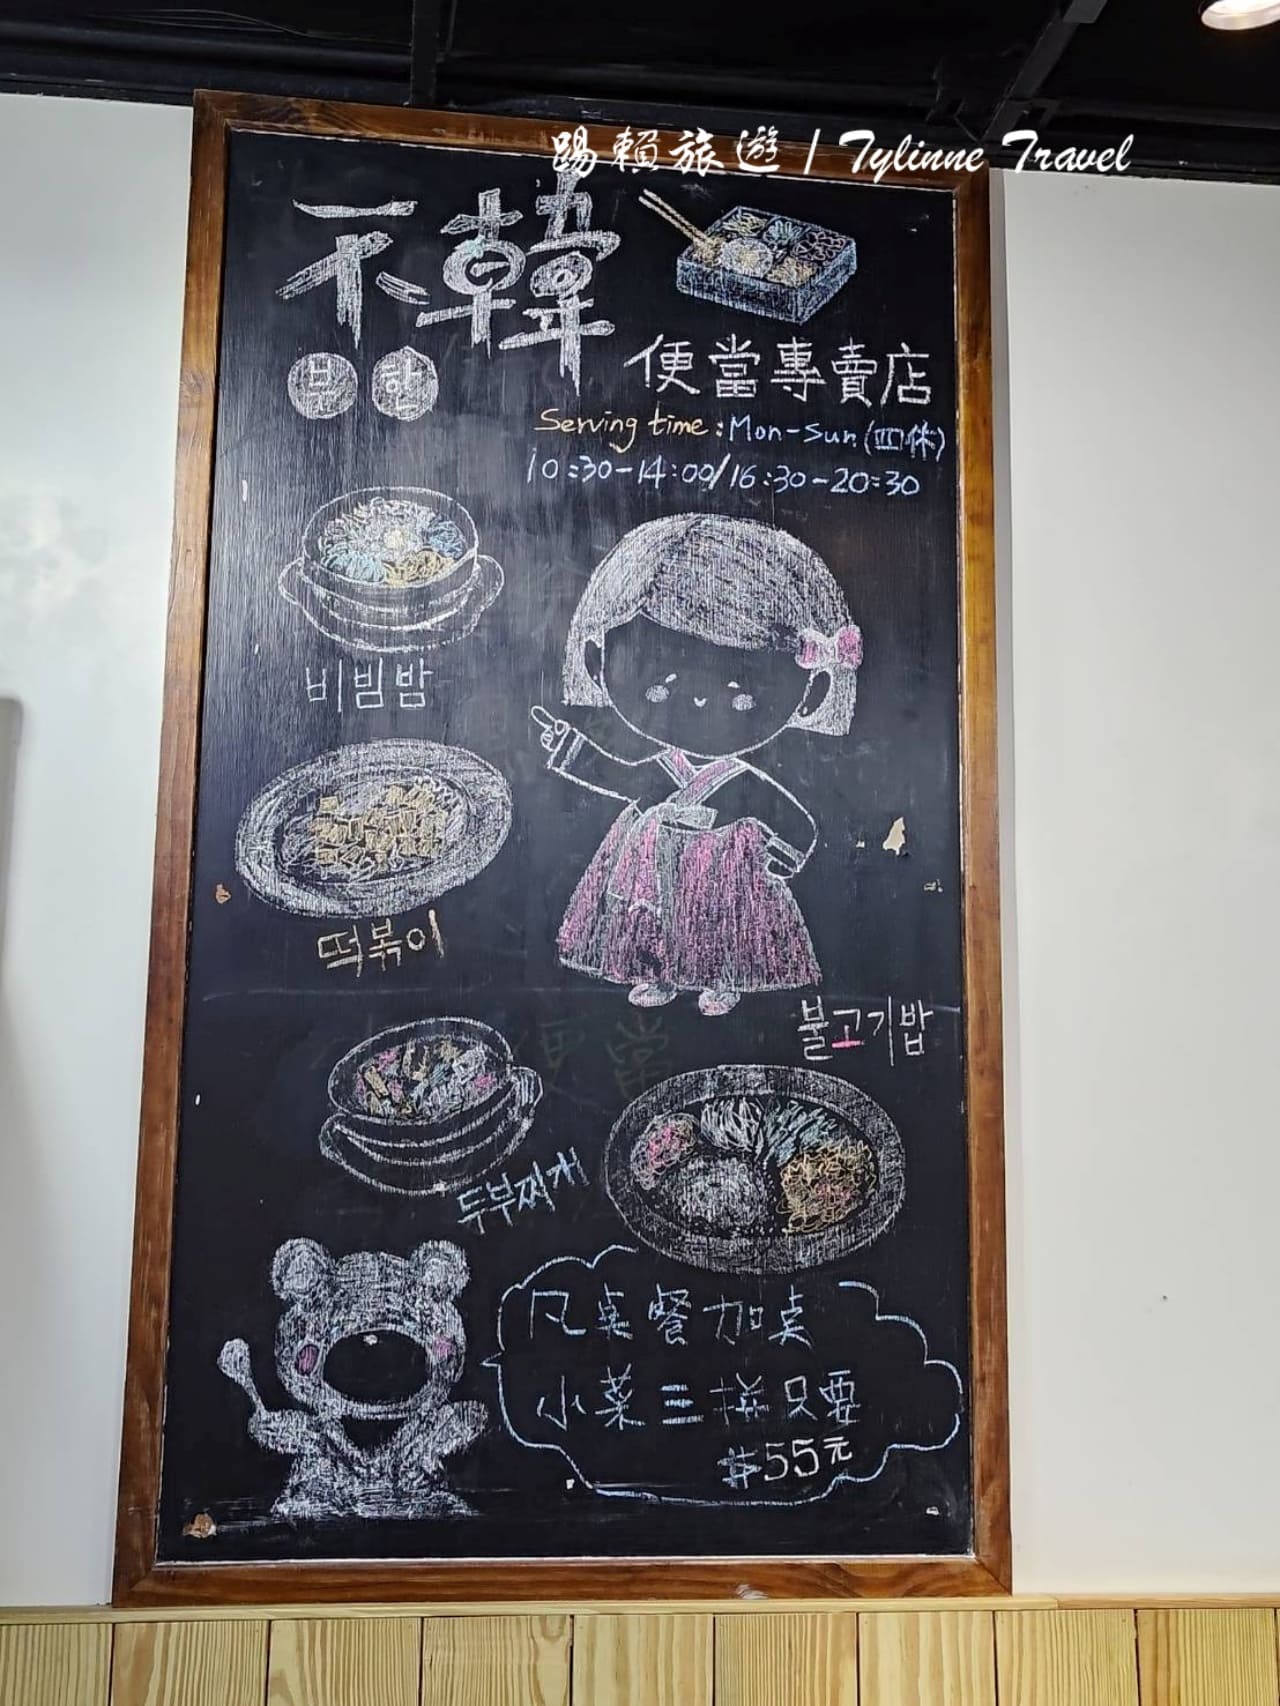 踢賴旅遊 / Tylinne Travel
不韓
분 한
便當專賣店
Serving time: Mon-Sun (四休)
10:30-14:00/16:30-20:30
비빔밤
떡볶이
불고기밥
便當
두부찌개
凡桌餐加桌
小菜三拼只要
$55元